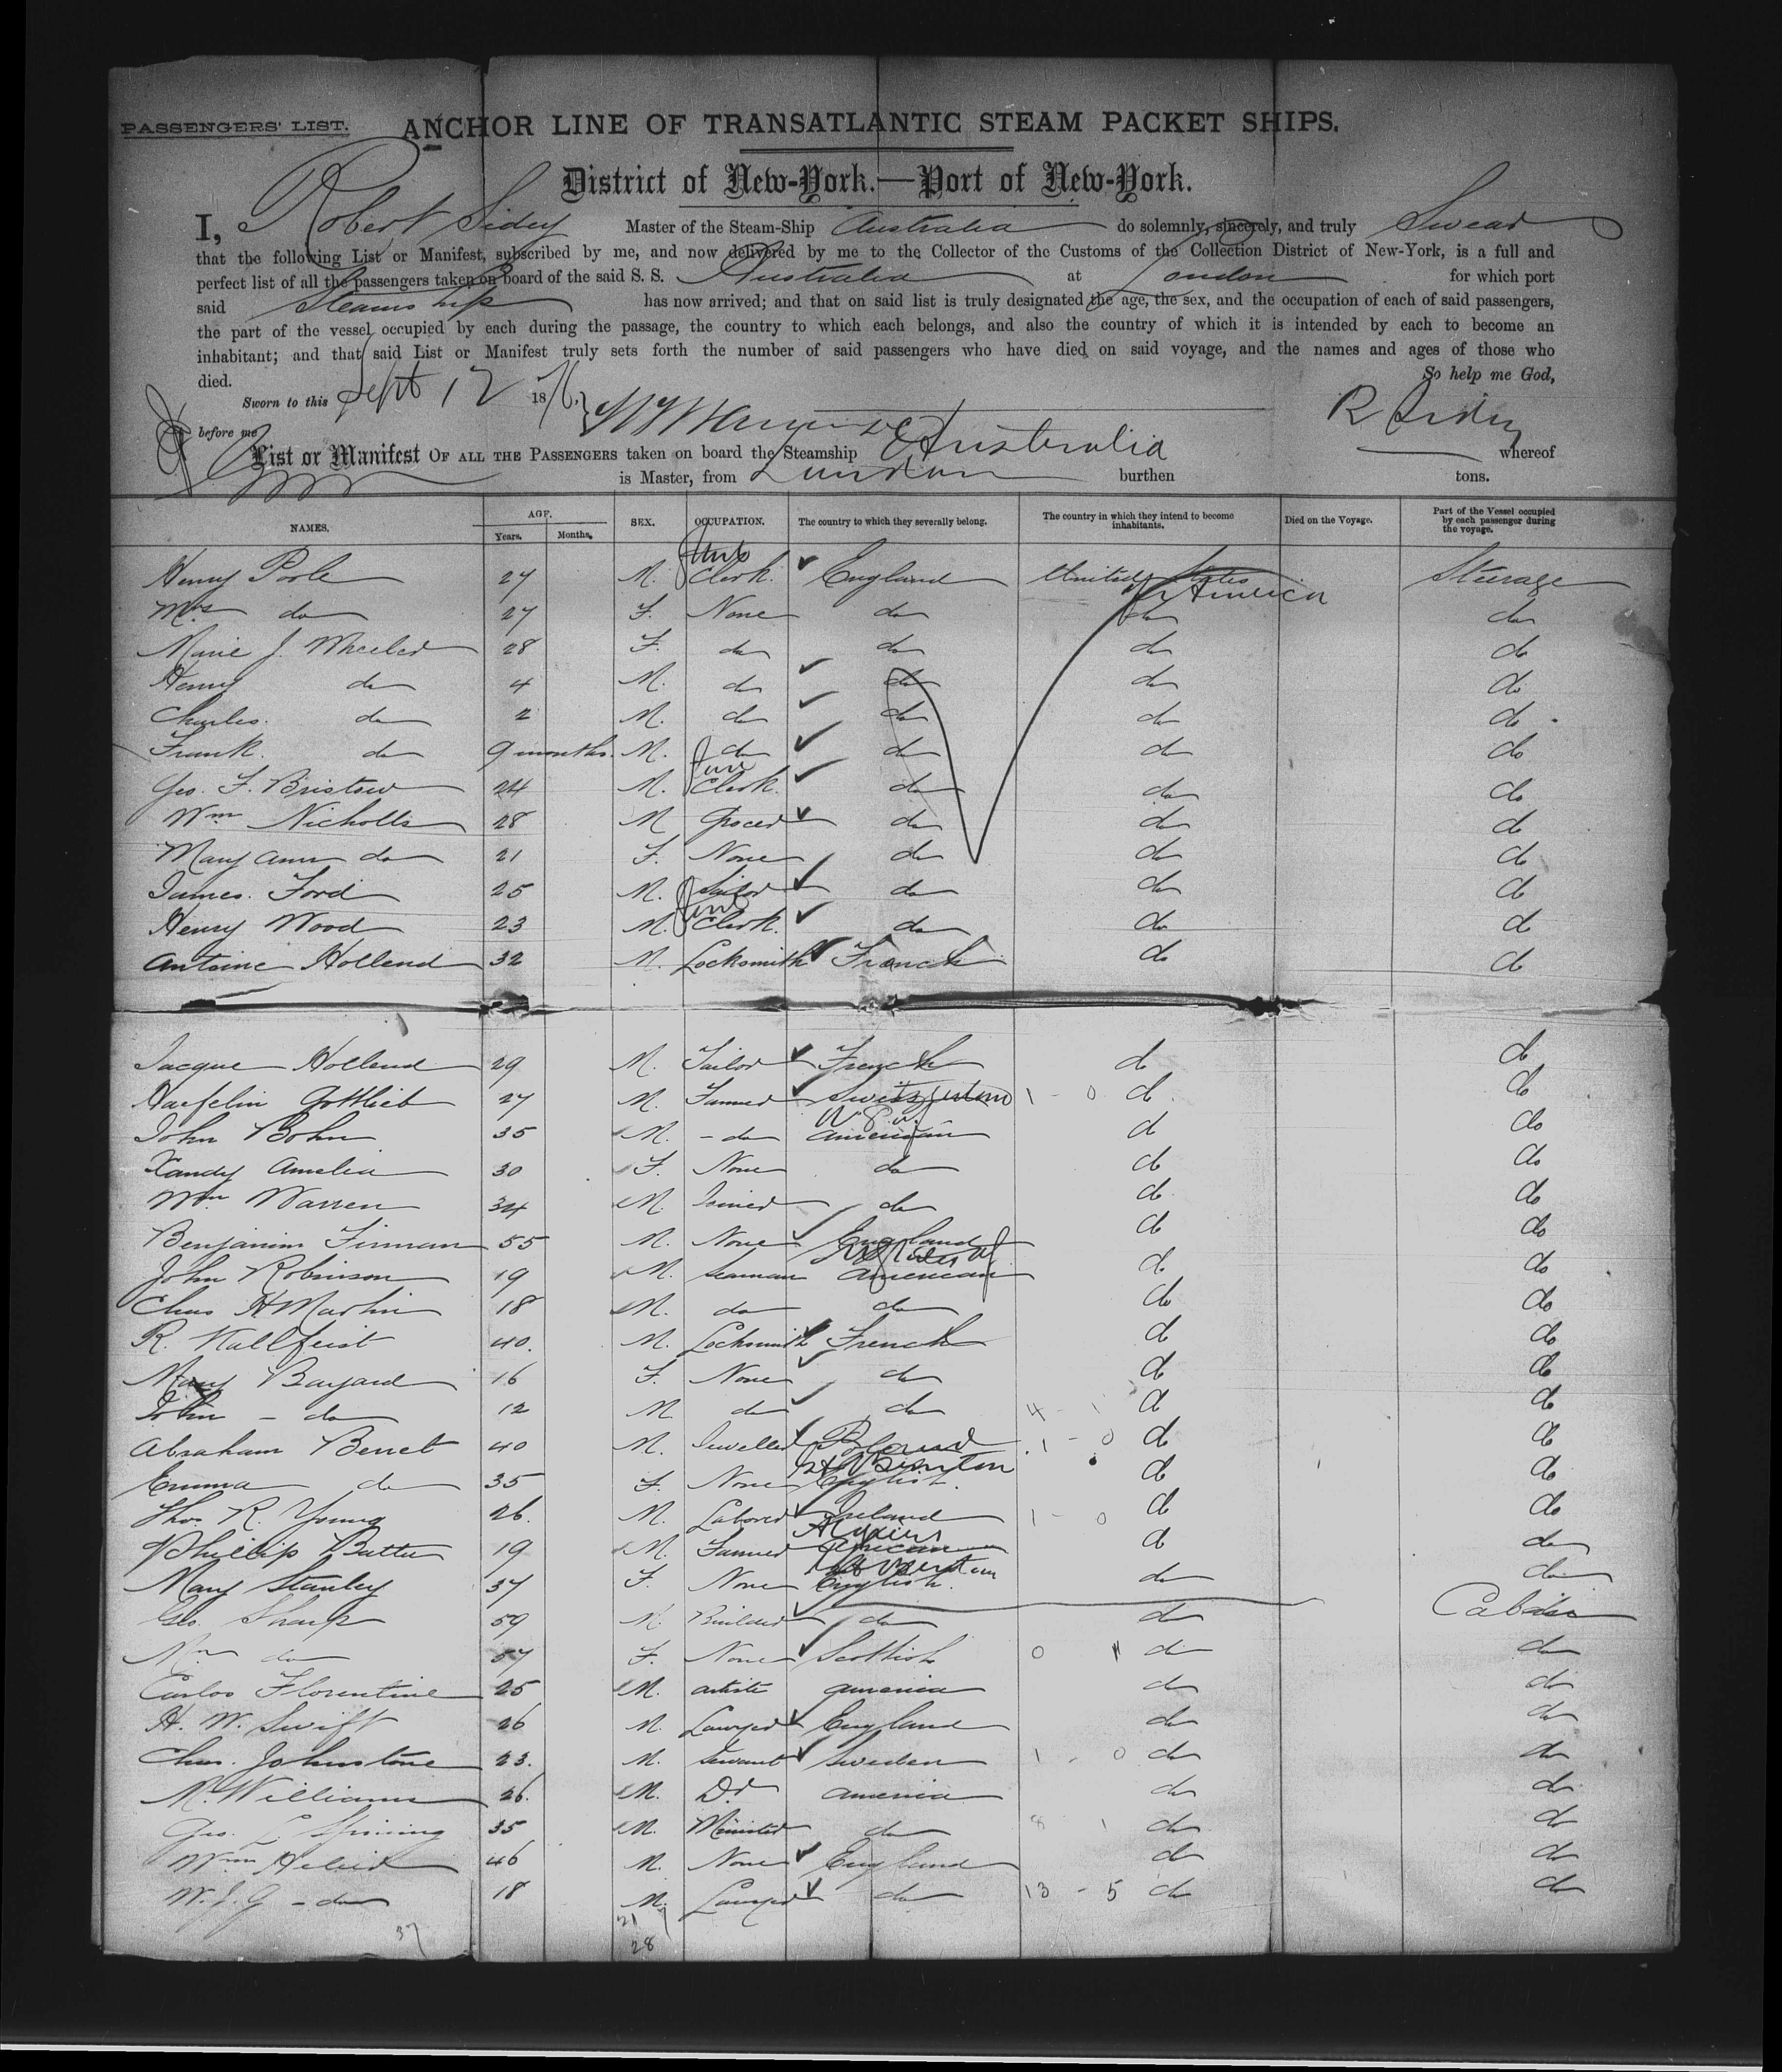 PASSENGERS' LIST.
ANCHOR LINE OF TRANSATLANTIC STEAM PACKET SHIPS.
District of New-York.—Port of New-York.
I, Robert Sidey Master of the Steam-Ship Australia do solemnly, sincerely, and truly Swear
that the following List or Manifest, subscribed by me, and now delivered by me to the Collector of the Customs of the Collection District of New-York, is a full and
perfect list of all the passengers taken on board of the said S. S. Australia at London for which port
said Steamship has now arrived; and that on said list is truly designated the age, the sex, and the occupation of each of said passengers,
the part of the vessel occupied by each during the passage, the country to which each belongs, and also the country of which it is intended by each to become an
inhabitant; and that said List or Manifest truly sets forth the number of said passengers who have died on said voyage, and the names and ages of those who
died. So help me God,
Sworn to this Sept 12 1876, R Sidey
before me
List or Manifest OF ALL THE PASSENGERS taken on board the Steamship Australia whereof
is Master, from London burthen tons.
NAMES. AGE. Years. Months. SEX. OCCUPATION. The country to which they severally belong. The country in which they intend to become inhabitants. Died on the Voyage. Part of the Vessel occupied by each passenger during the voyage.
Henry Poole 27 M. Clerk. England United States America Steerage
Mrs do 27 F. None do do do
Marie J. Wheeler 28 F. do do do do
Henry do 4 M. do do do do
Charles. do 2 M. do do do do
Frank. do 9 months. M. do do do do
Geo. F. Bristow 24 M. Clerk. do do do
Wm Nicholls 28 M Grocer do do do
Mary Ann do 21 F. None do do do
James. Ford 25 M. Sailor do do do
Henry Wood 23 M. Clerk. do do do
Antoine Hollend 32 M. Locksmith French do do
Jacque Hollend 29 M. Tailor French do do
Haefelin Gottlieb 27 M. Farmer 1 - 0 do do
John Bohn 35 M. - do American do do
Xandy Amelia 30 F. None do do do
Wm. Warren 34 M. Joiner do do do
Benjamin Finman 55 M. None England do do
John Robinson 19 M. Seaman American do do
Chas H Martin 18 M. do do do do
R. Kallfeist 40. M. Locksmith French do do
Mary Bayard 16 F. None do do do
John - do 12 M do do 4 - 1 do do
Abraham Benet 40 M. Jeweller Poland 1 - 0 do do
Emma do 35 F. None English. do do
Thos R. Young 26. M. Laborer Ireland 1 - 0 do do
Phillip Battu 19 M. Farmer do do
Mary Stanley 37 F. None English. do do
Geo. Sharp 59 M. Builder do do Cabin
do 57 F. None Scottish 0 do do
Carlos Florentine 25 M. Artiste America do do
H. W. Swift 26 M. Lawyer England do do
Chas. Johnstone 23. M. Servant Sweden 1 - 0 do do
M. Williams 26. M. Dr America do do
Geo. L. Spining 35 M. Minister do 8 1 do do
Wm 46 M. None England do do
W. J. G - do 18 M. Lawyer do 13 - 5 do do
37 21
28